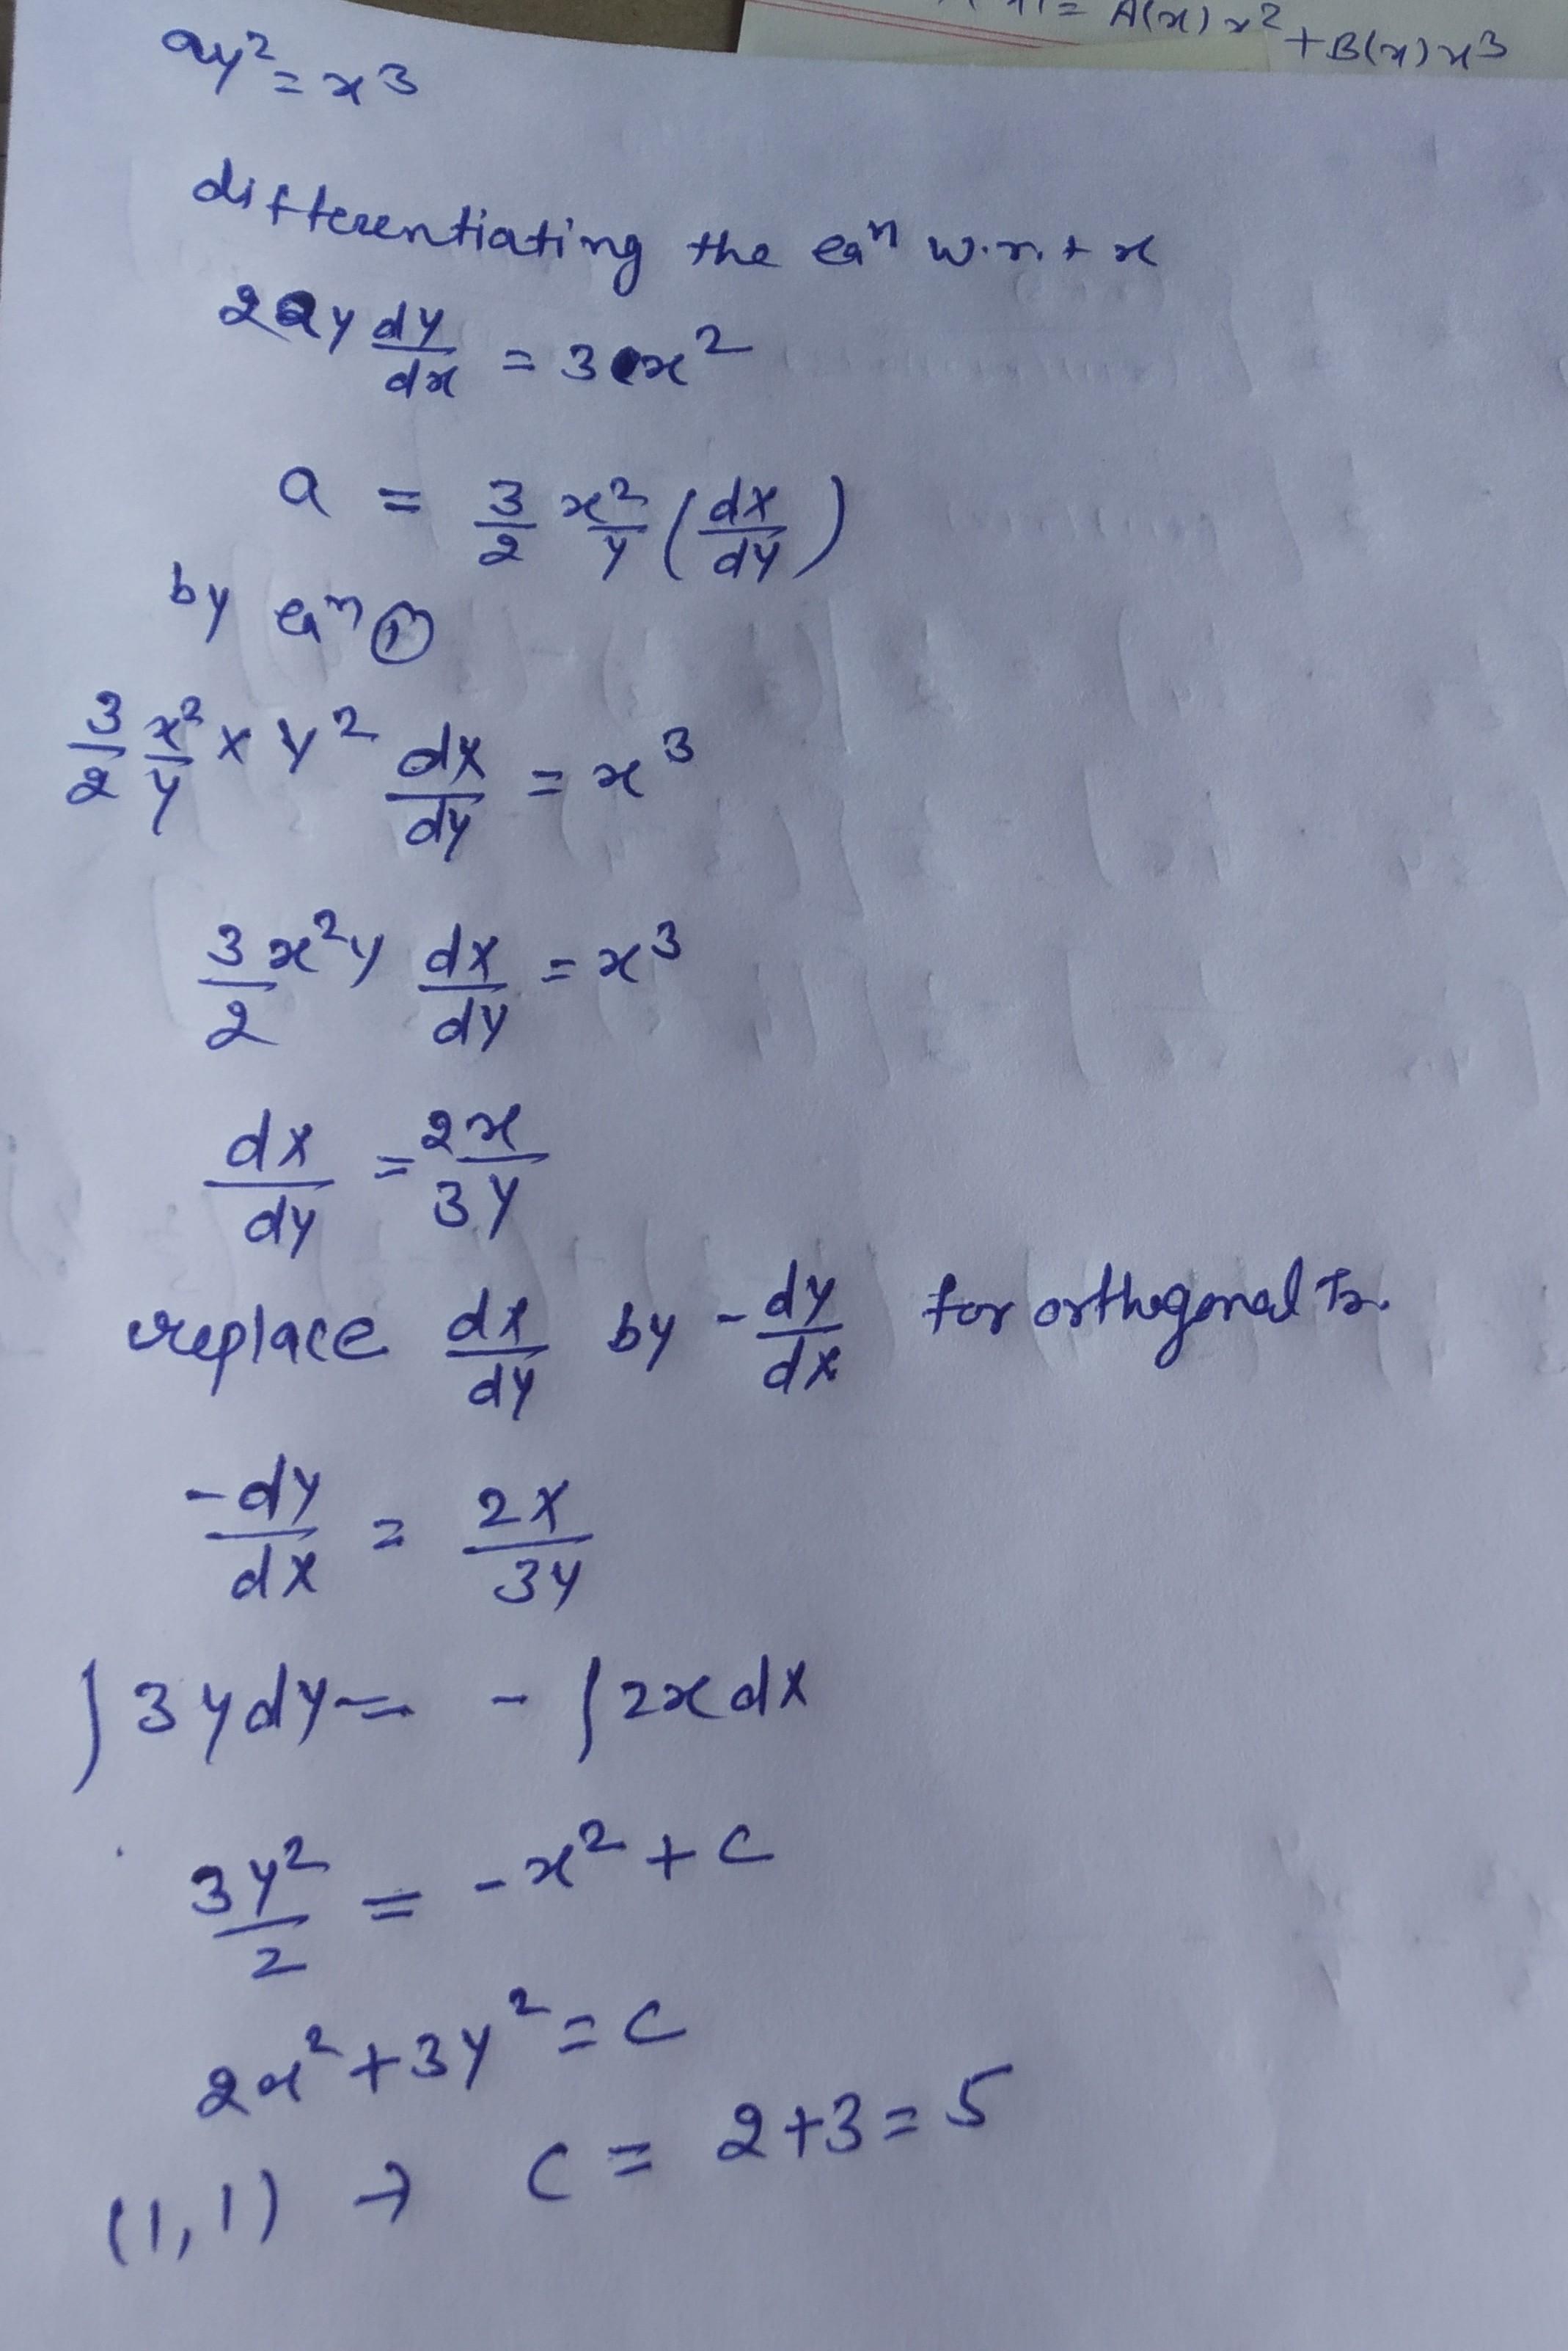 = A(x) x² + B(x) x³
ay² = x³
differentiating the eqⁿ w.r.t x
2ay dy/dx = 3x²
a = 3/2 x²/y (dx/dy)
by eqⁿ ①
3/2 x²/y × y² dx/dy = x³
3/2 x²y dx/dy = x³
dx/dy = 2x/3y
replace dx/dy by -dy/dx for orthogonal Tr.
-dy/dx = 2x/3y
∫3ydy = -∫2xdx
3y²/2 = -x² + c
2x² + 3y² = c
(1,1) → c = 2+3 = 5